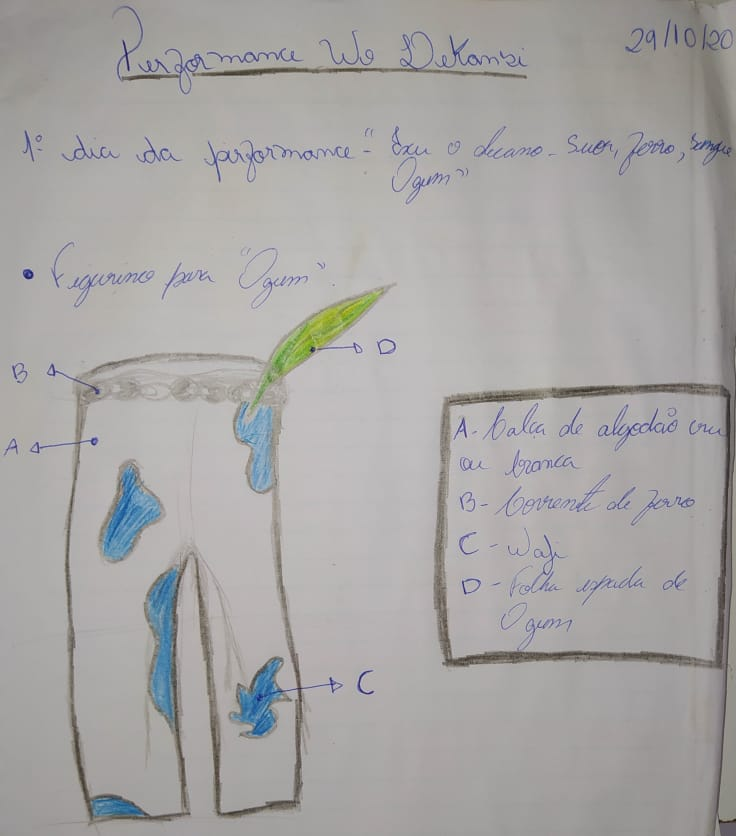 Performance Wo DeKansi
29/10/20
1º dia da performance - "Exu o decano - Suor, ferro, sangue
Ogum"
• Figurino para "Ogum".
D
B
A
C
A - Calça de algodão cru
ou branca
B - Corrente de ferro
C - Waji
D - Folha espada de
Ogum